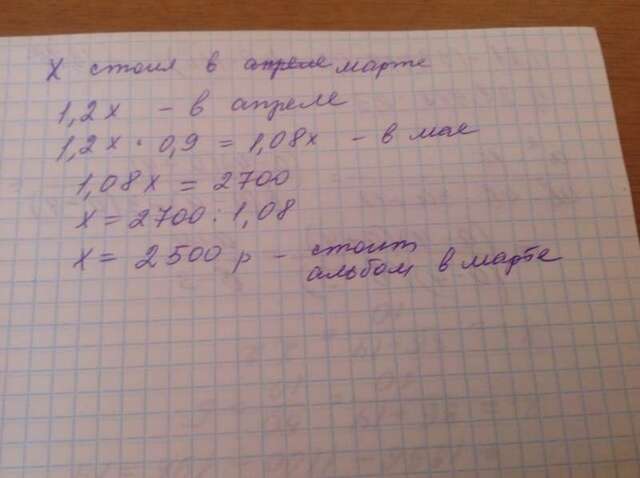 X стоил в апреле марте
1,2х - в апреле
1,2х · 0,9 = 1,08х - в мае
1,08х = 2700
х = 2700 : 1,08
х = 2500 р - стоит
альбом в марте